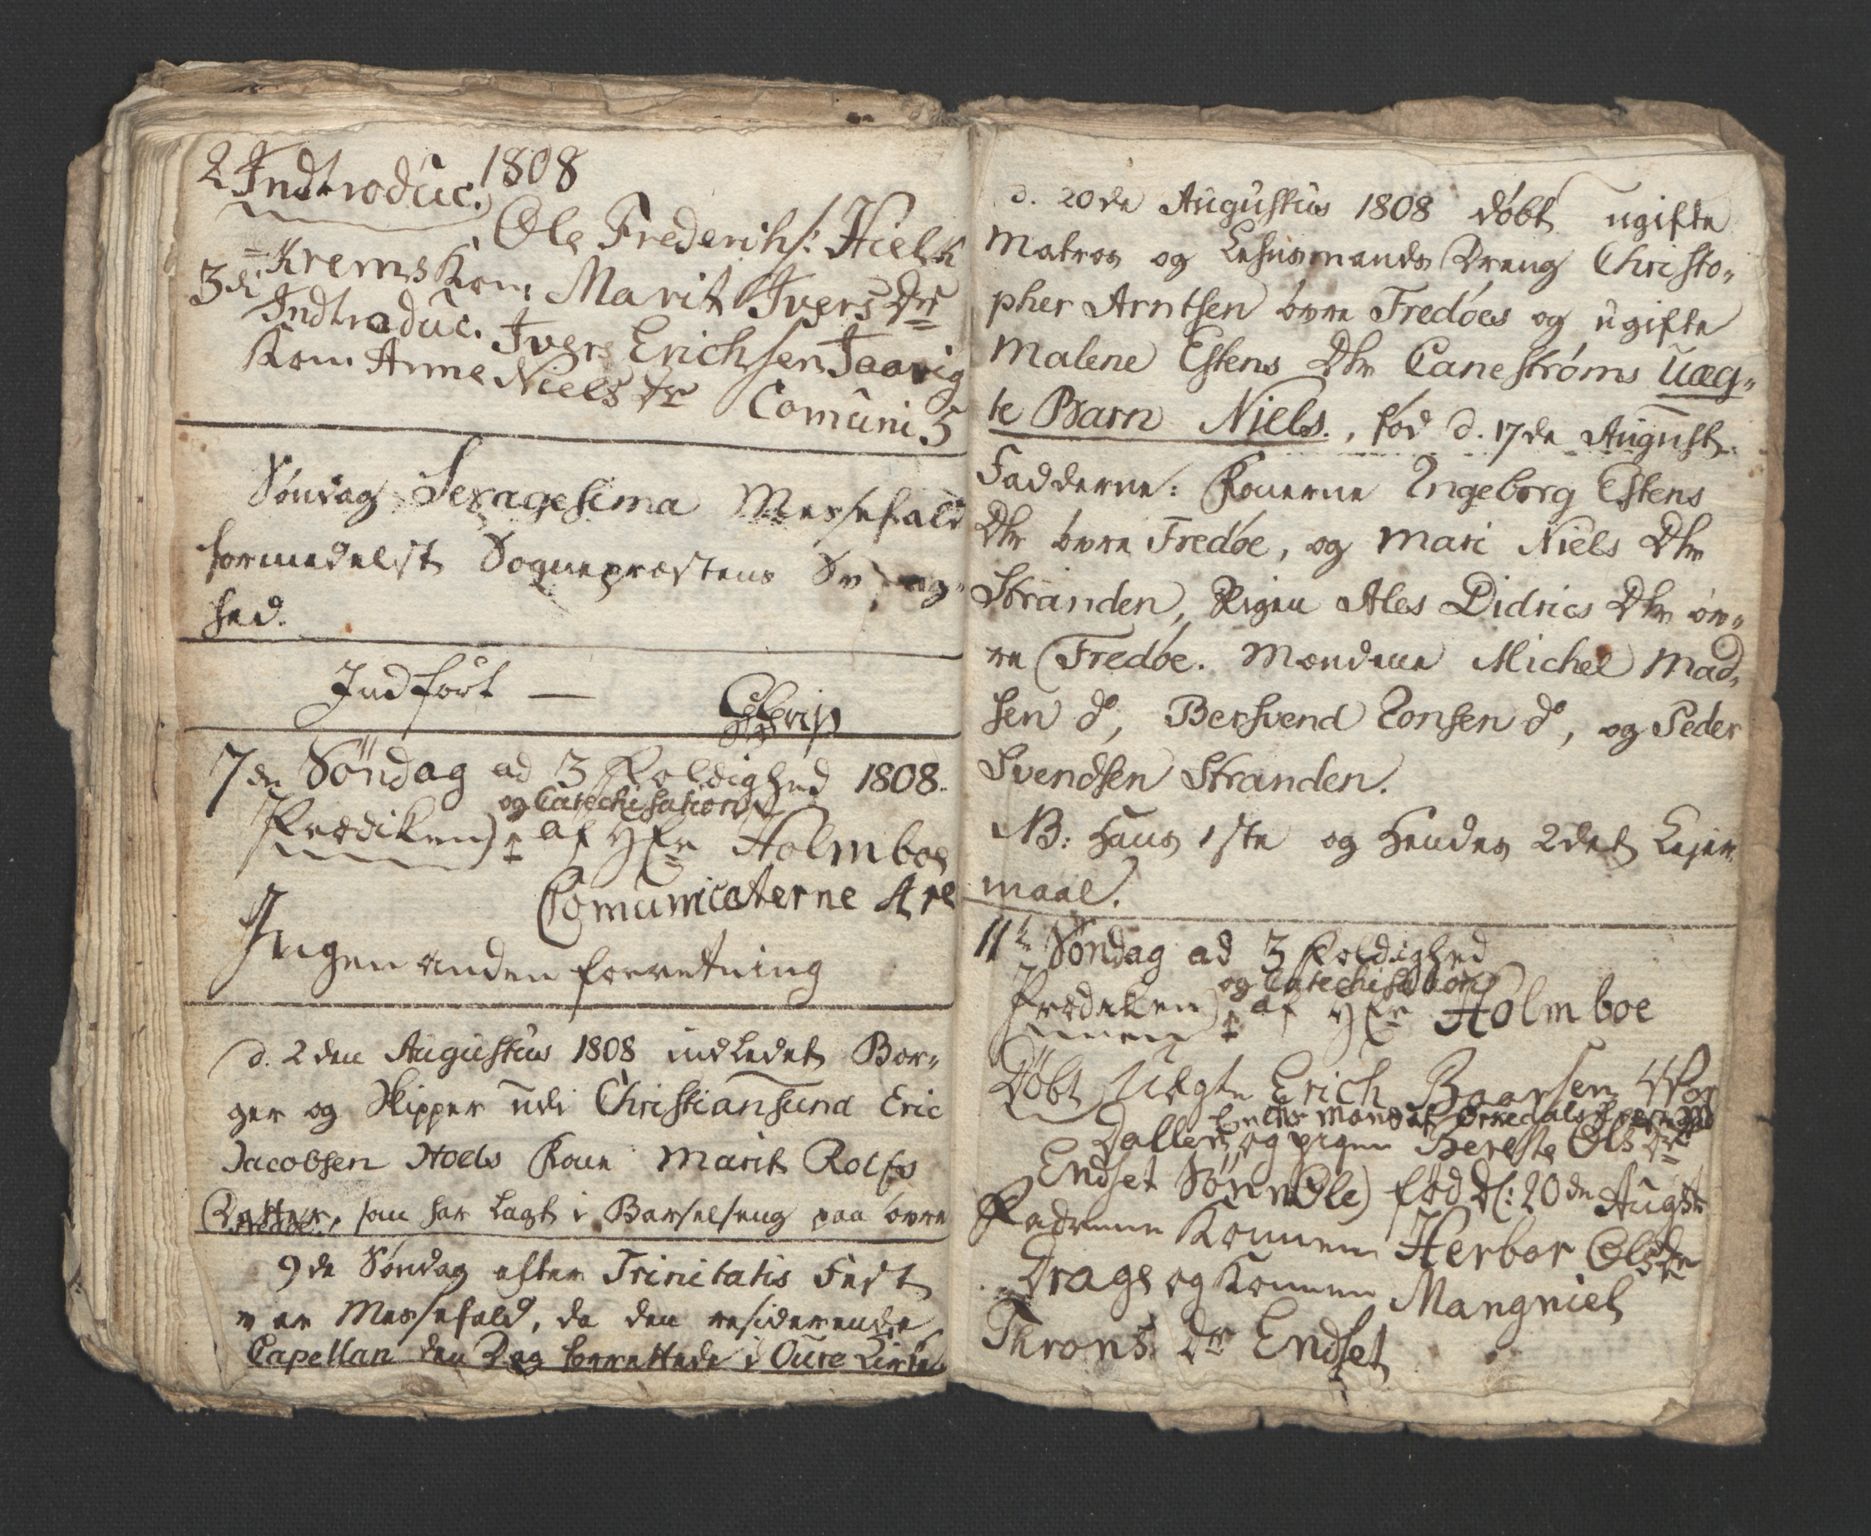 1808
2 Indtroduc.
Ole Frederichs: Hielk
=Krems Kone Marit Ivers Dtr
3di
Indtroduc. Ivers Erichsen Taarig
Kone Anne Niels Dr Comuni 5
Søndag Sexagesima Messefald
formedelst Sognepræstens Svag-
hed.
Indført —
7de Søndag ad 3foldighed 1808.
og Catechisation
Prædiken) af Hr Holmboe
Comunicaterne Are
Ingen anden forretning
d. 2den Augustus 1808 indledet Bor-
ger og Skipper udi Christiansund Eric
Jacobsen Hoels Kone Marit Rolfs
Datter, som har lagt i Barselseng paa øvre
Fredøe.
9de Søndag efter Trinitatis Fest
var Messefald, da den residerende
Capellan den Dag forrettede i Oure Kirke
d. 20de Augustus 1808 døbt ugifte
Matros og Lehnsmands Dreng Christo-
pher Arntsen øvre Fredøes og ugifte
Malene Estens Dtr Canestrøms Uæg-
te Barn Niels., fød d. 17de August.
Fadderne: Konerne Ingeborg Estens
Dtr øvre Fredøe, og Mari Niels Dtr
Stranden, Pigen Ales Didrics Dtr øv-
re Fredøe. Mændene Michel Mad-
sen do, Bersvend Jonsen do, og Peder
Svendsen Stranden.
NB: Hans 1ste og Hendes 2det Lejer-
maal.
11te Søndag ad 3foldighed
og Catechisation
Prædiken) af Hr Holmboe
Døbt Uægte Erich Baarsen
Enke Mand af Ørkedals
Dallen og pigen Bereste Ols Dr
Endset Søn (Ole) fød d: 20de Augste
Fadrene Konnen Herbor Olsdr
Drage og Konnen Mangniel
Throns Dr Endset